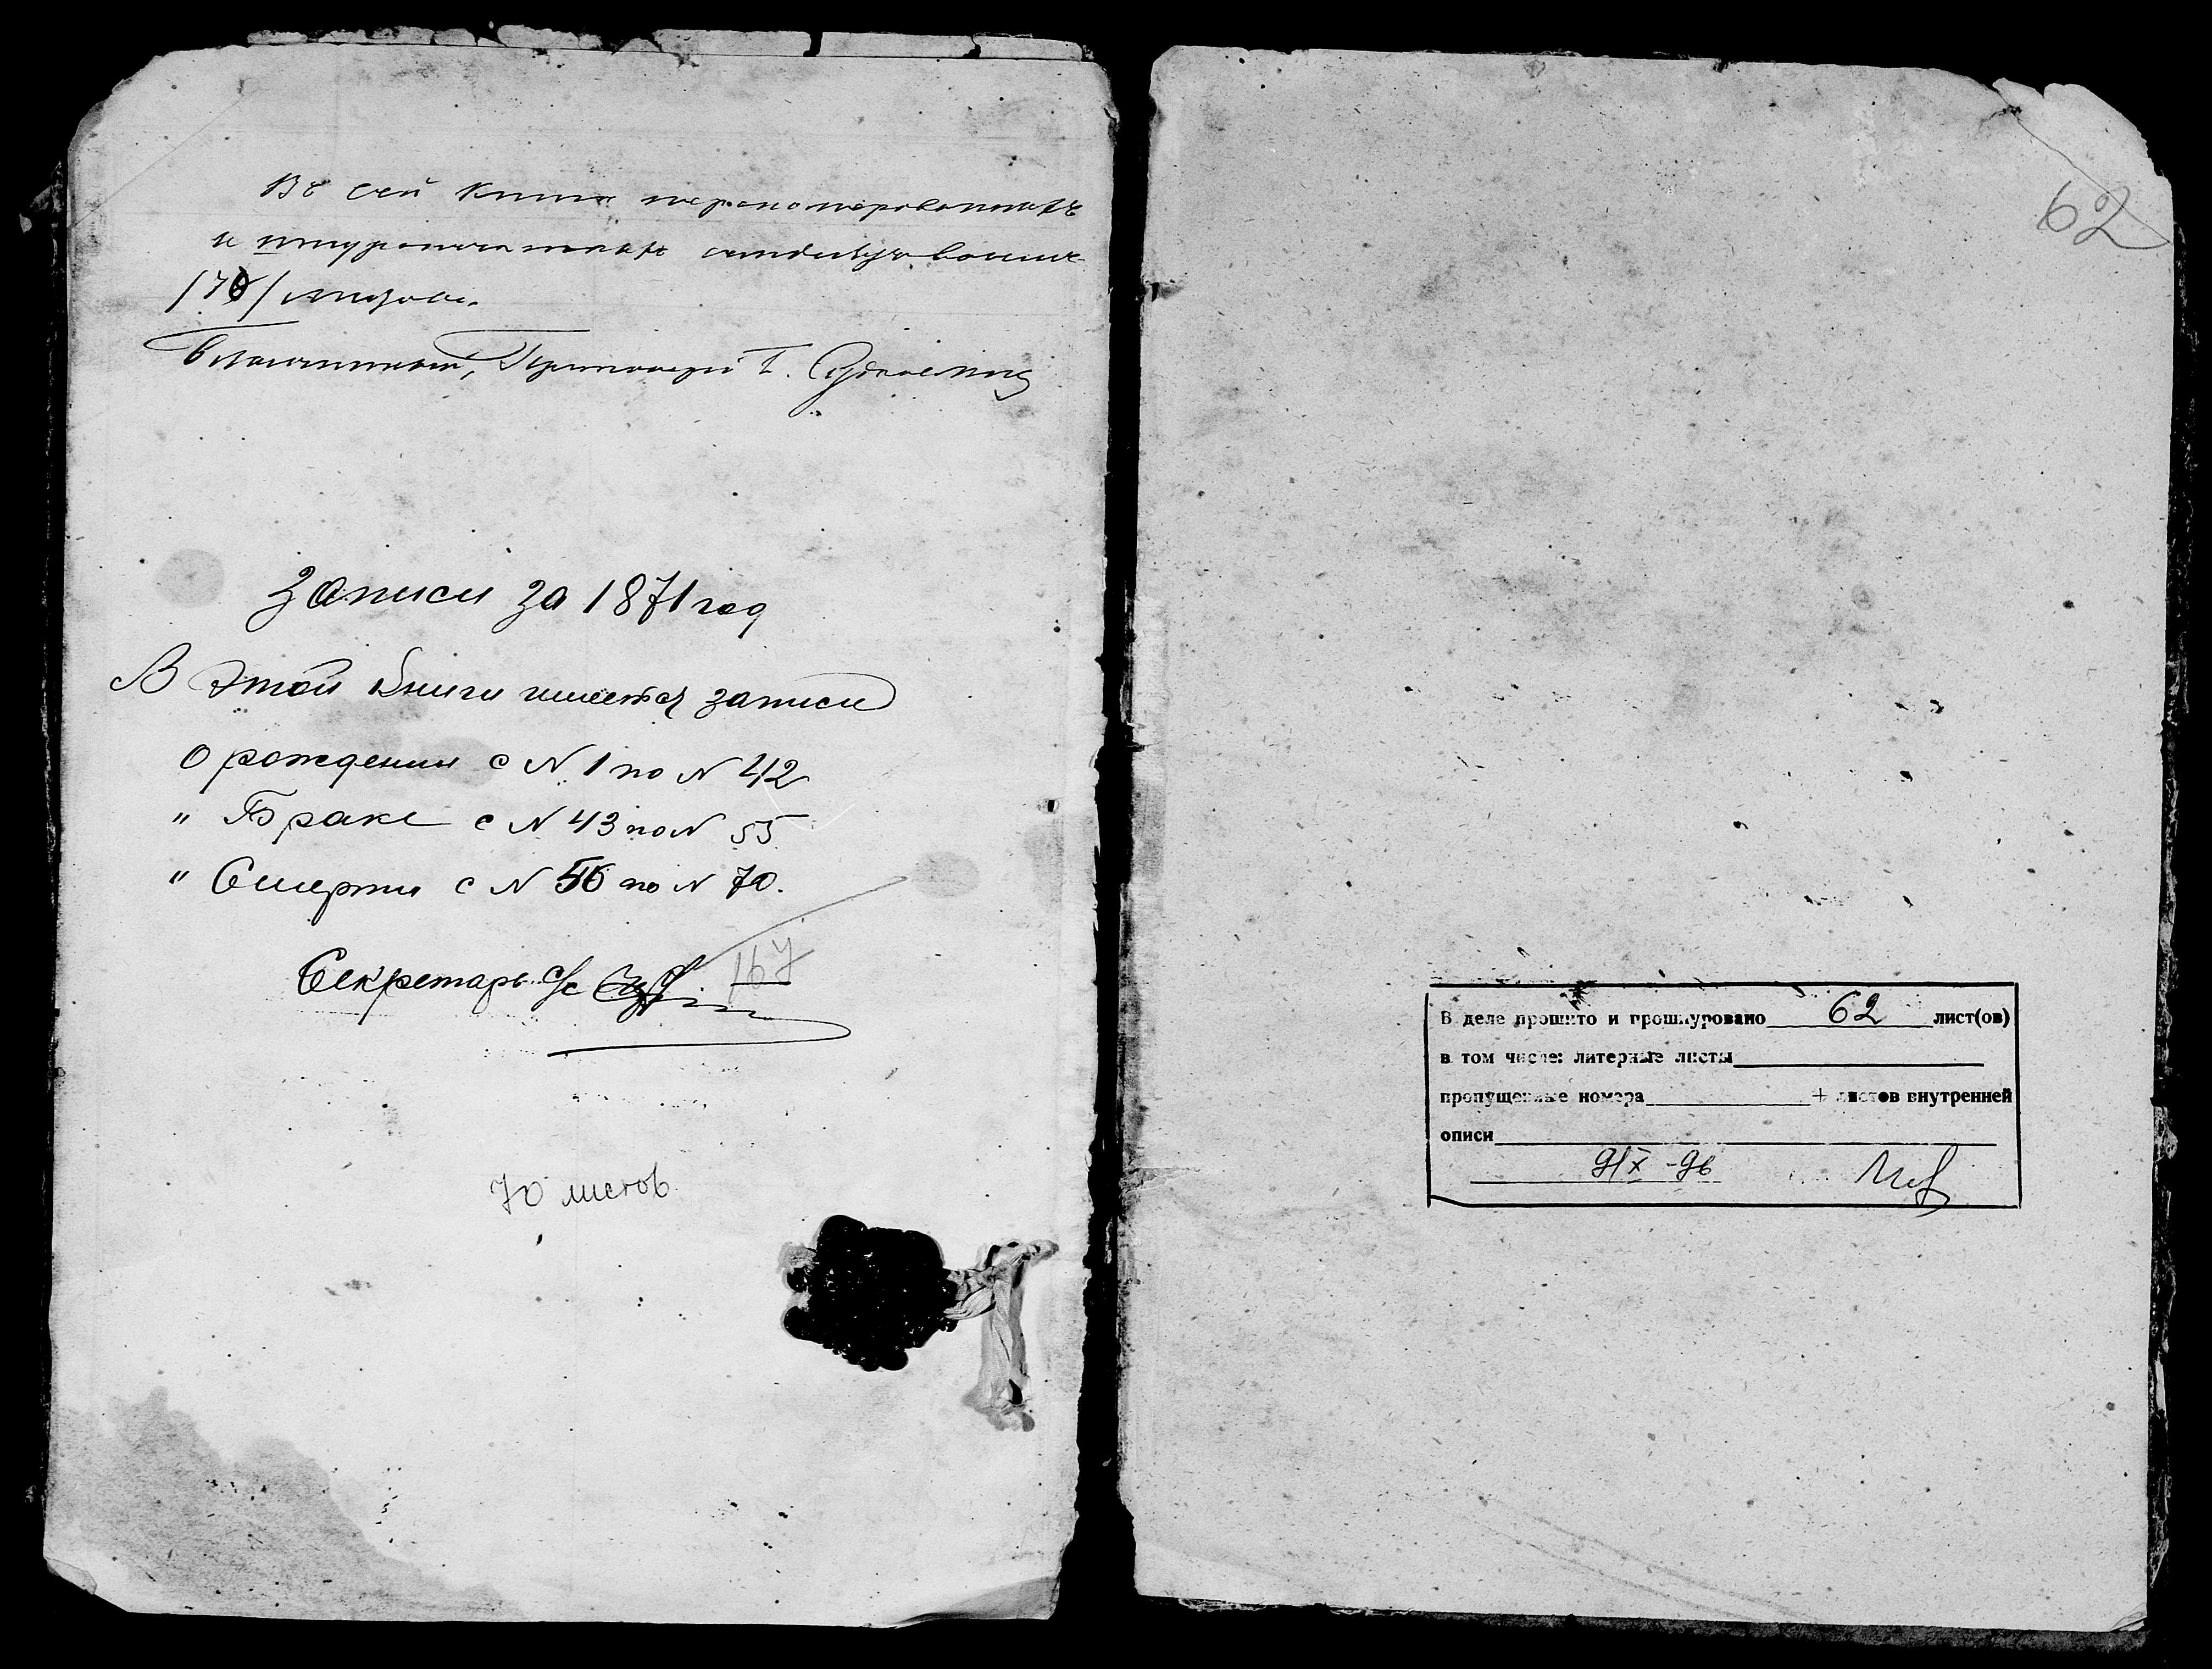 Въ сей книгѣ перенумерованныхъ
и шнуропечатныхъ
/70/ листовъ.
Благочинный, Протоіерей
Записи за 1871 год
В этой книги имеется записи
О рождении с N 1 по N 42
" Браке с N 43 по N 55
" Смерти с N 56 по N 70.
Секретарь с/с
167
70 листов
62
В деле прошито и прошнуровано 62 лист(ов)
в том числе: литерные листы
пропущенные номера + листов внутренней
описи
9/X-96